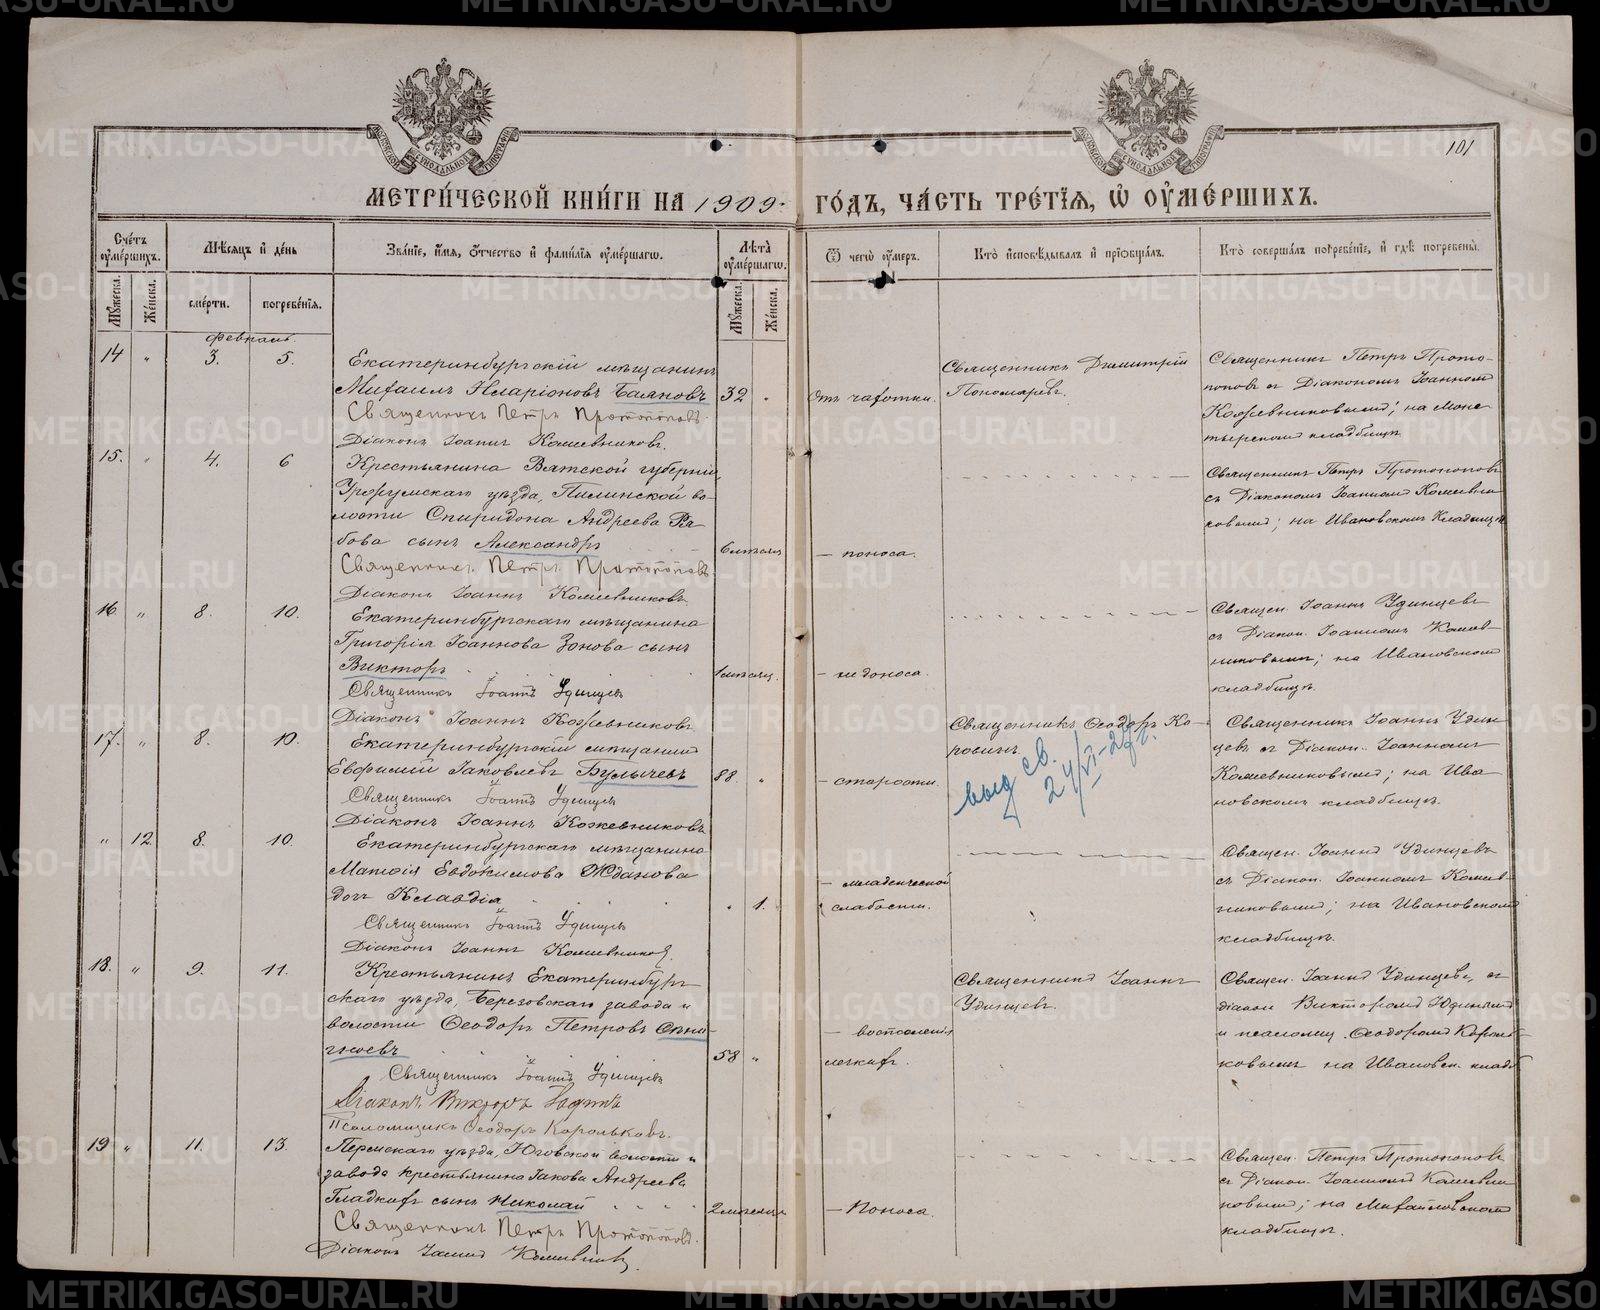 101
МЕТРИЧЕСКОЙ КНИГИ НА 1909 ГОДЪ, ЧАСТЬ ТРЕТІЯ, Ѿ ОУМЕРШИХЪ.
Счетъ оумершихъ.
Мѣсяцъ и день
Званіе, имя, отчество и фамилія оумершагѡ.
Лѣта оумершагѡ.
Ѿ чегѡ оумеръ.
Кто исповѣдывалъ и пріобщалъ.
Кто совершалъ погребеніе, и гдѣ погребены.
Мужеска.
Женска.
смерти.
погребенія.
Мужеска.
Женска.
Февраль.
14 " 3. 5.
Екатеринбургскій мѣщанинъ
Михаилъ Иларіоновъ Балновъ 32 "
Священникъ Петръ Протопоповъ.
Діаконъ Іоаннъ Кожевниковъ.
Отъ чахотки.
Священникъ Димитрій
Пономаревъ.
Священникъ Петръ Прото-
поповъ с Діакономъ Іоанном
Кожевниковымъ; на Мона-
тырском кладбищѣ
15. " 4. 6
Крестьянина Вятской губерніи,
Уржумскаго уѣзда, Пилинской во-
лости Спиридона Андреева Ря-
бова сынъ Александръ 6 мѣсяц
Священникъ Петръ Протопоповъ
Діаконъ Іоаннъ Кожевниковъ.
— поноса.
Священникъ Петръ Протопоповъ
съ Діакономъ Іоанномъ Кожевни-
ковымъ; на Ивановскомъ Кладбищѣ
16 " 8. 10.
Екатеринбургскаго мѣщанина
Григорія Іоаннова Зонова сынъ
Викторъ 1 мѣсяц.
Священникъ Іоаннъ Удинцевъ
Діаконъ Іоаннъ Кожевниковъ
— недоноса.
Священ. Іоаннъ Удинцевъ
съ Діакон. Іоанномъ Кожев-
никовымъ; на Ивановскомъ
кладбищѣ.
17. " 8. 10.
Екатеринбургскій мѣщанинъ
Евфимій Іаковлевъ Булычевъ 88 "
Священникъ Іоаннъ Удинцевъ
Діаконъ Іоаннъ Кожевниковъ
— старости.
Священникъ Ѳеодоръ Ко-
ровинъ.
выд св.
24/VI-27 г.
Священникъ Іоаннъ Удин-
цевъ с Діакон. Іоанномъ
Кожевниковымъ; на Ива
новскомъ кладбищѣ.
" 12. 8. 10.
Екатеринбургскаго мѣщанина
Матѳія Евдокимова Жданова
дочь Клавдія " 1.
Священникъ Іоаннъ Удинцевъ
Діаконъ Іоаннъ Кожевниковъ
— младенческой
слабости.
Священ. Іоаннъ Удинцевъ
съ Діакон. Іоанномъ Кожев-
никовымъ; на Ивановскомъ
кладбищѣ.
18. " 9. 11.
Крестьянинъ Екатеринбург
скаго уѣзда, Березовскаго завода и
волости Ѳеодоръ Петровъ
58 "
Священникъ Іоаннъ Удинцевъ
Діаконъ Викторъ Юдинъ
Псаломщикъ Ѳеодоръ Корольковъ.
— воспаленія
легкихъ.
Священникъ Іоаннъ
Удинцевъ.
Священ. Іоаннъ Удинцевъ, с
діакон Викторомъ Юдинымъ
и псаломщ. Ѳеодоромъ Король-
ковымъ на Ивановск. кладб
19 " 11. 13.
Пермскаго уѣзда, Юговской волости и
завода крестьянина Іакова Андреева
Гладких сынъ Николай 2 мѣсяца
Священникъ Петръ Протопоповъ.
Діаконъ Іоаннъ Кожевников.
— Поноса.
Священ. Петръ Протопоповъ
с Діакон. Іоанномъ Кожевни
ковымъ; на Михайловскомъ
кладбищѣ.